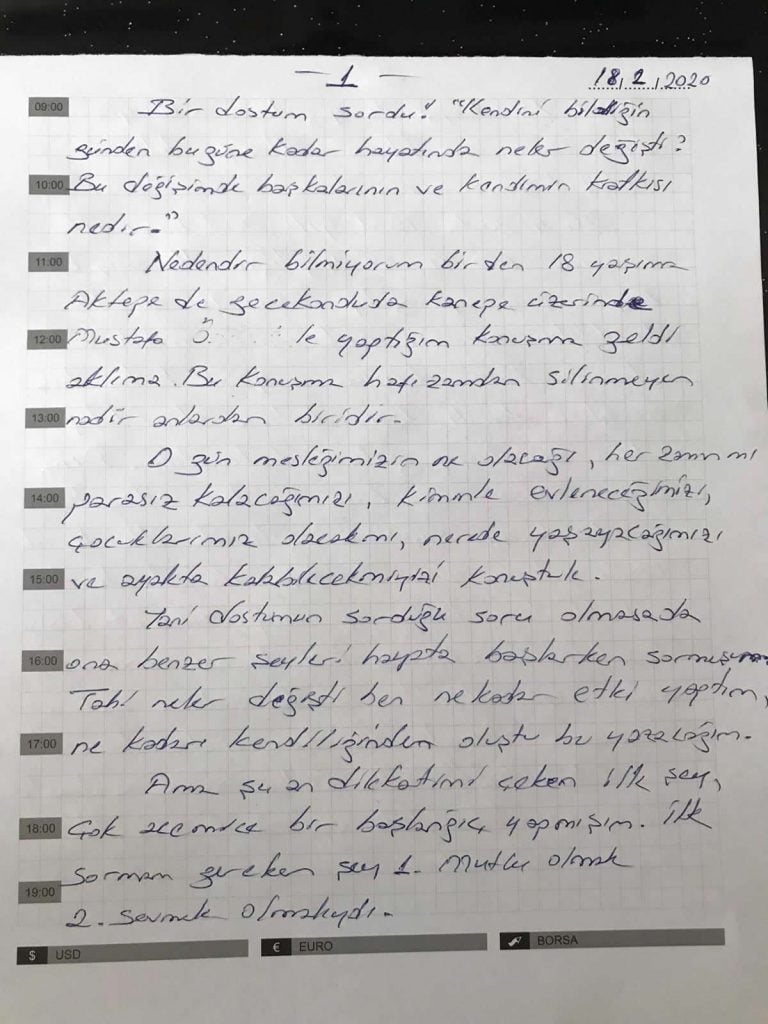 1
18.2.2020
09:00 Bir dostum sordu! "Kendini bildiğin
günden bugüne kadar hayatında neler değişti?
10:00 Bu değişimde başkalarının ve kendimin katkısı
nedir."
11:00 Nedendir bilmiyorum birden 18 yaşıma
Aktepe de gecekonduda kanepe üzerinde
12:00 Mustafa Ö le yaptığım konuşma geldi
aklıma. Bu konuşma hafızamdan silinmeyen
13:00 nadir anlardan biridir.
O gün mesleğimizin ne olacağı, her zaman mı
14:00 parasız kalacağımızı, kiminle evleneceğimizi,
çocuklarımız olacakmı, nerede yaşayacağımızı
15:00 ve ayakta kalabilecekmiyizi konuştuk.
Yani dostumun sorduğu soru olmasada
16:00 ona benzer şeyleri hayata başlarken sormuşum.
Tabi neler değişti ben nekadar etki yaptım,
17:00 ne kadarı kendiliğinden oluştu bu yazacağım.
Ama şu an dikkatimi çeken ilk şey,
18:00 Çok acemice bir başlangıç yapmışım. İlk
19:00 Sormam gereken şey 1. Mutlu olmak
2. Sevmek olmalıydı.
$ USD € EURO BORSA